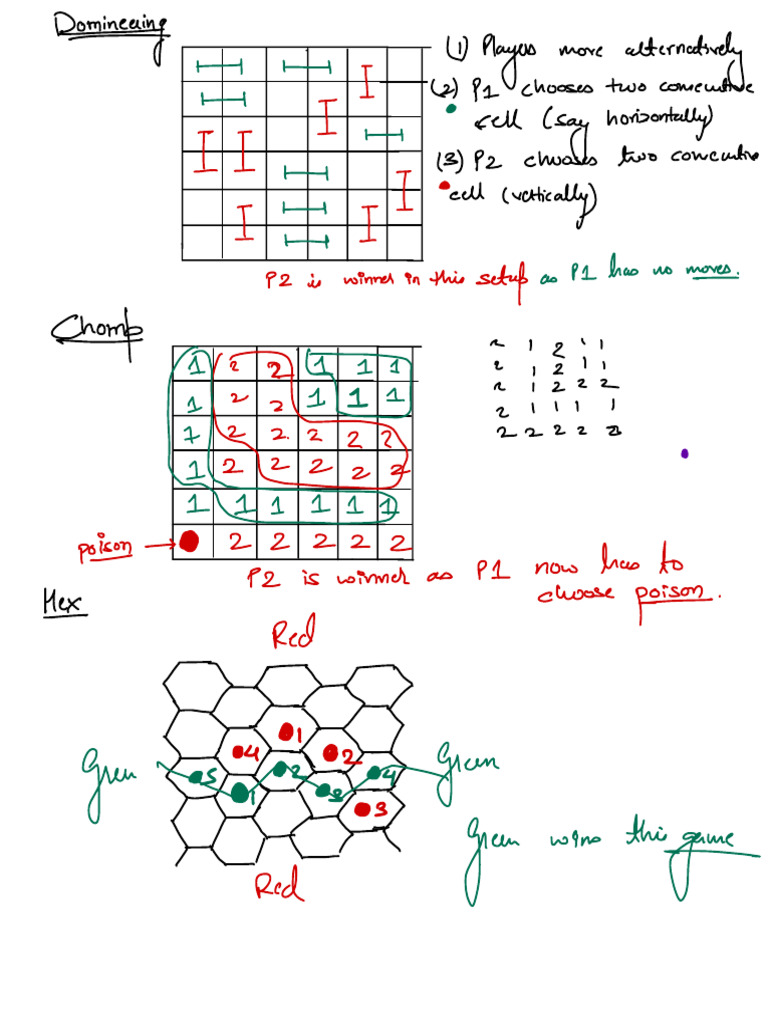 Domineering
(1) Players move alternatively
(2) P1 chooses two consecutive
cell (say horizontally)
(3) P2 chooses two consecutive
cell (vertically)
P2 is winner in this setup as P1 has no moves.
Chomp
1 2 2 1 1 1
1 2 2 1 1 1
1 2 2 2 2 2
1 2 2 2 2 2
1 1 1 1 1 1
2 2 2 2 2
poison
2 1 2 1 1
2 1 2 1 1
2 1 2 2 2
2 1 1 1 1
2 2 2 2 2
P2 is winner as P1 now has to
choose poison.
Hex
Red
1
4 2
Green 5 2 4 Green
1 3
3
Green wins this game
Red